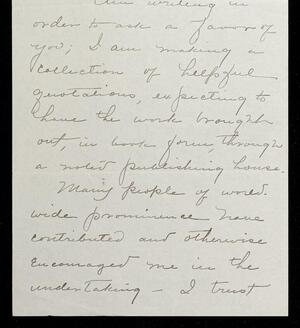 Am writing in
order to ask a favor of
you; I am making a
collection of helpful
quotations, expecting to
have the work brought
out, in book form, through
a noted publishing house.
Many people of world
wide prominence have
contributed and otherwise
encouraged me in the
undertaking — I trust